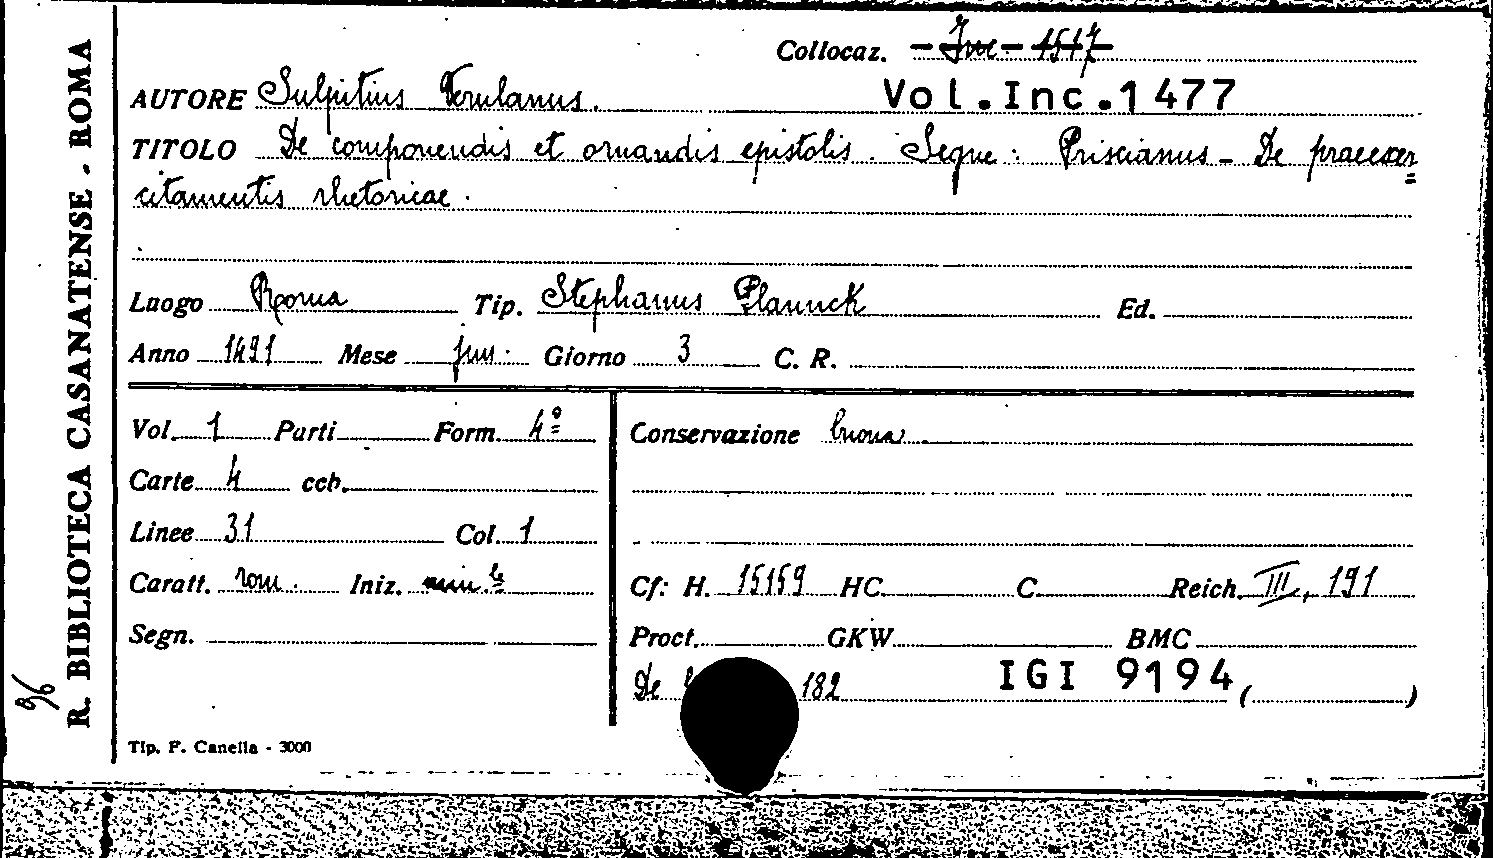 R. BIBLIOTECA CASANATENSE - ROMA
96
Collocaz. - Inc - 1517
AUTORE Sulpitius Verulanus. Vol.Inc.1477
TITOLO De componendis et ornandis epistolis. Segue: Priscianus - De praeexer
citamentis rhetoricae.
Luogo Roma Tip. Stephanus Plannck Ed.
Anno 1491 Mese jun. Giorno 3 C. R.
Vol. 1 Parti Form. 4º
Carte 4 ccb.
Linee 31 Col. 1
Caratt. rom. Iniz. min.le
Segn.
Conservazione buona.
Cf: H. 15159 HC. C. Reich. III, 191
Proct. GKW. BMC
De 182 IGI 9194 ( )
Tip. F. Canella - 3000